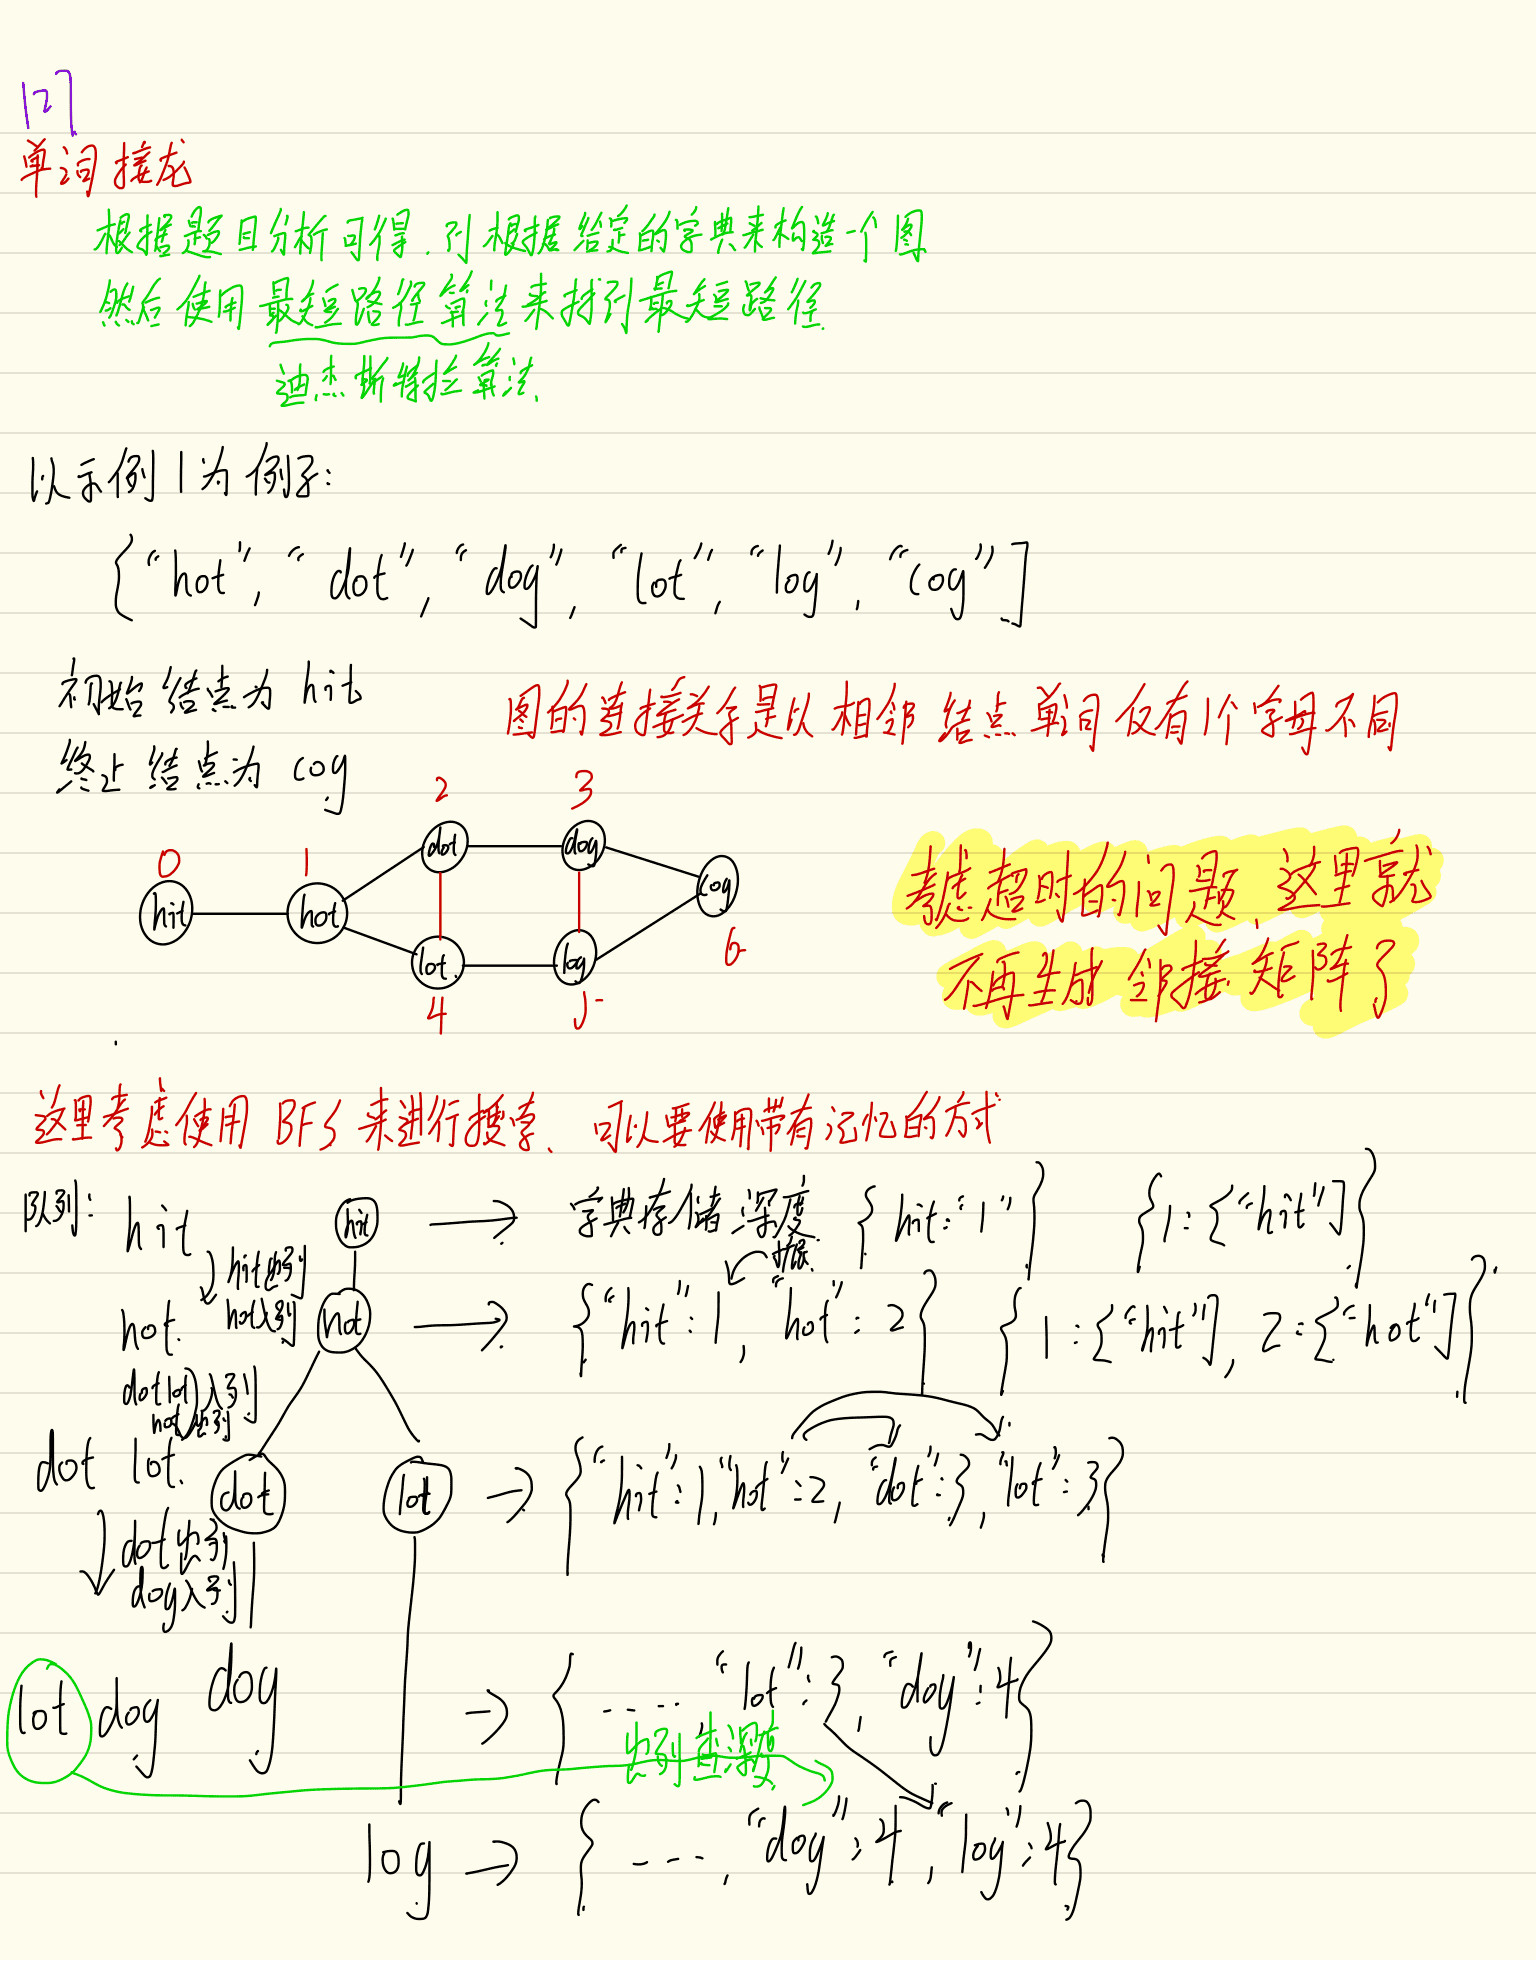 127
单词接龙
根据题目分析可得,可根据给定的字典来构造一个图
然后使用最短路径算法来找到最短路径
迪杰斯特拉算法.
以示例1为例子:
{"hot", "dot", "dog", "lot", "log", "cog"]
初始结点为 hit
图的连接关系是以相邻结点单词仅有1个字母不同
终止结点为 cog
2 3
dot dog
0 1
hit hot cog
lot log
6
4 5
考虑超时的问题,这里就
不再生成邻接矩阵了
这里考虑使用BFS来进行搜索、可以要使用带有记忆的方式
队列: hit hit → 字典存储深度 {hit:"1"} {1:["hit"]}
hit出列 扩展
hot入列
hot. hot → {"hit":1, "hot":2} {1:["hit"], 2:["hot"]}
dot lot入列
hot出列
dot lot. dot lot → {"hit":1,"hot":2, "dot":3,"lot":3}
dot出列
dog入列
lot dog dog → {....., "lot":3, "dog":4}
出列查深度
log → {...., "dog":4, "log":4}